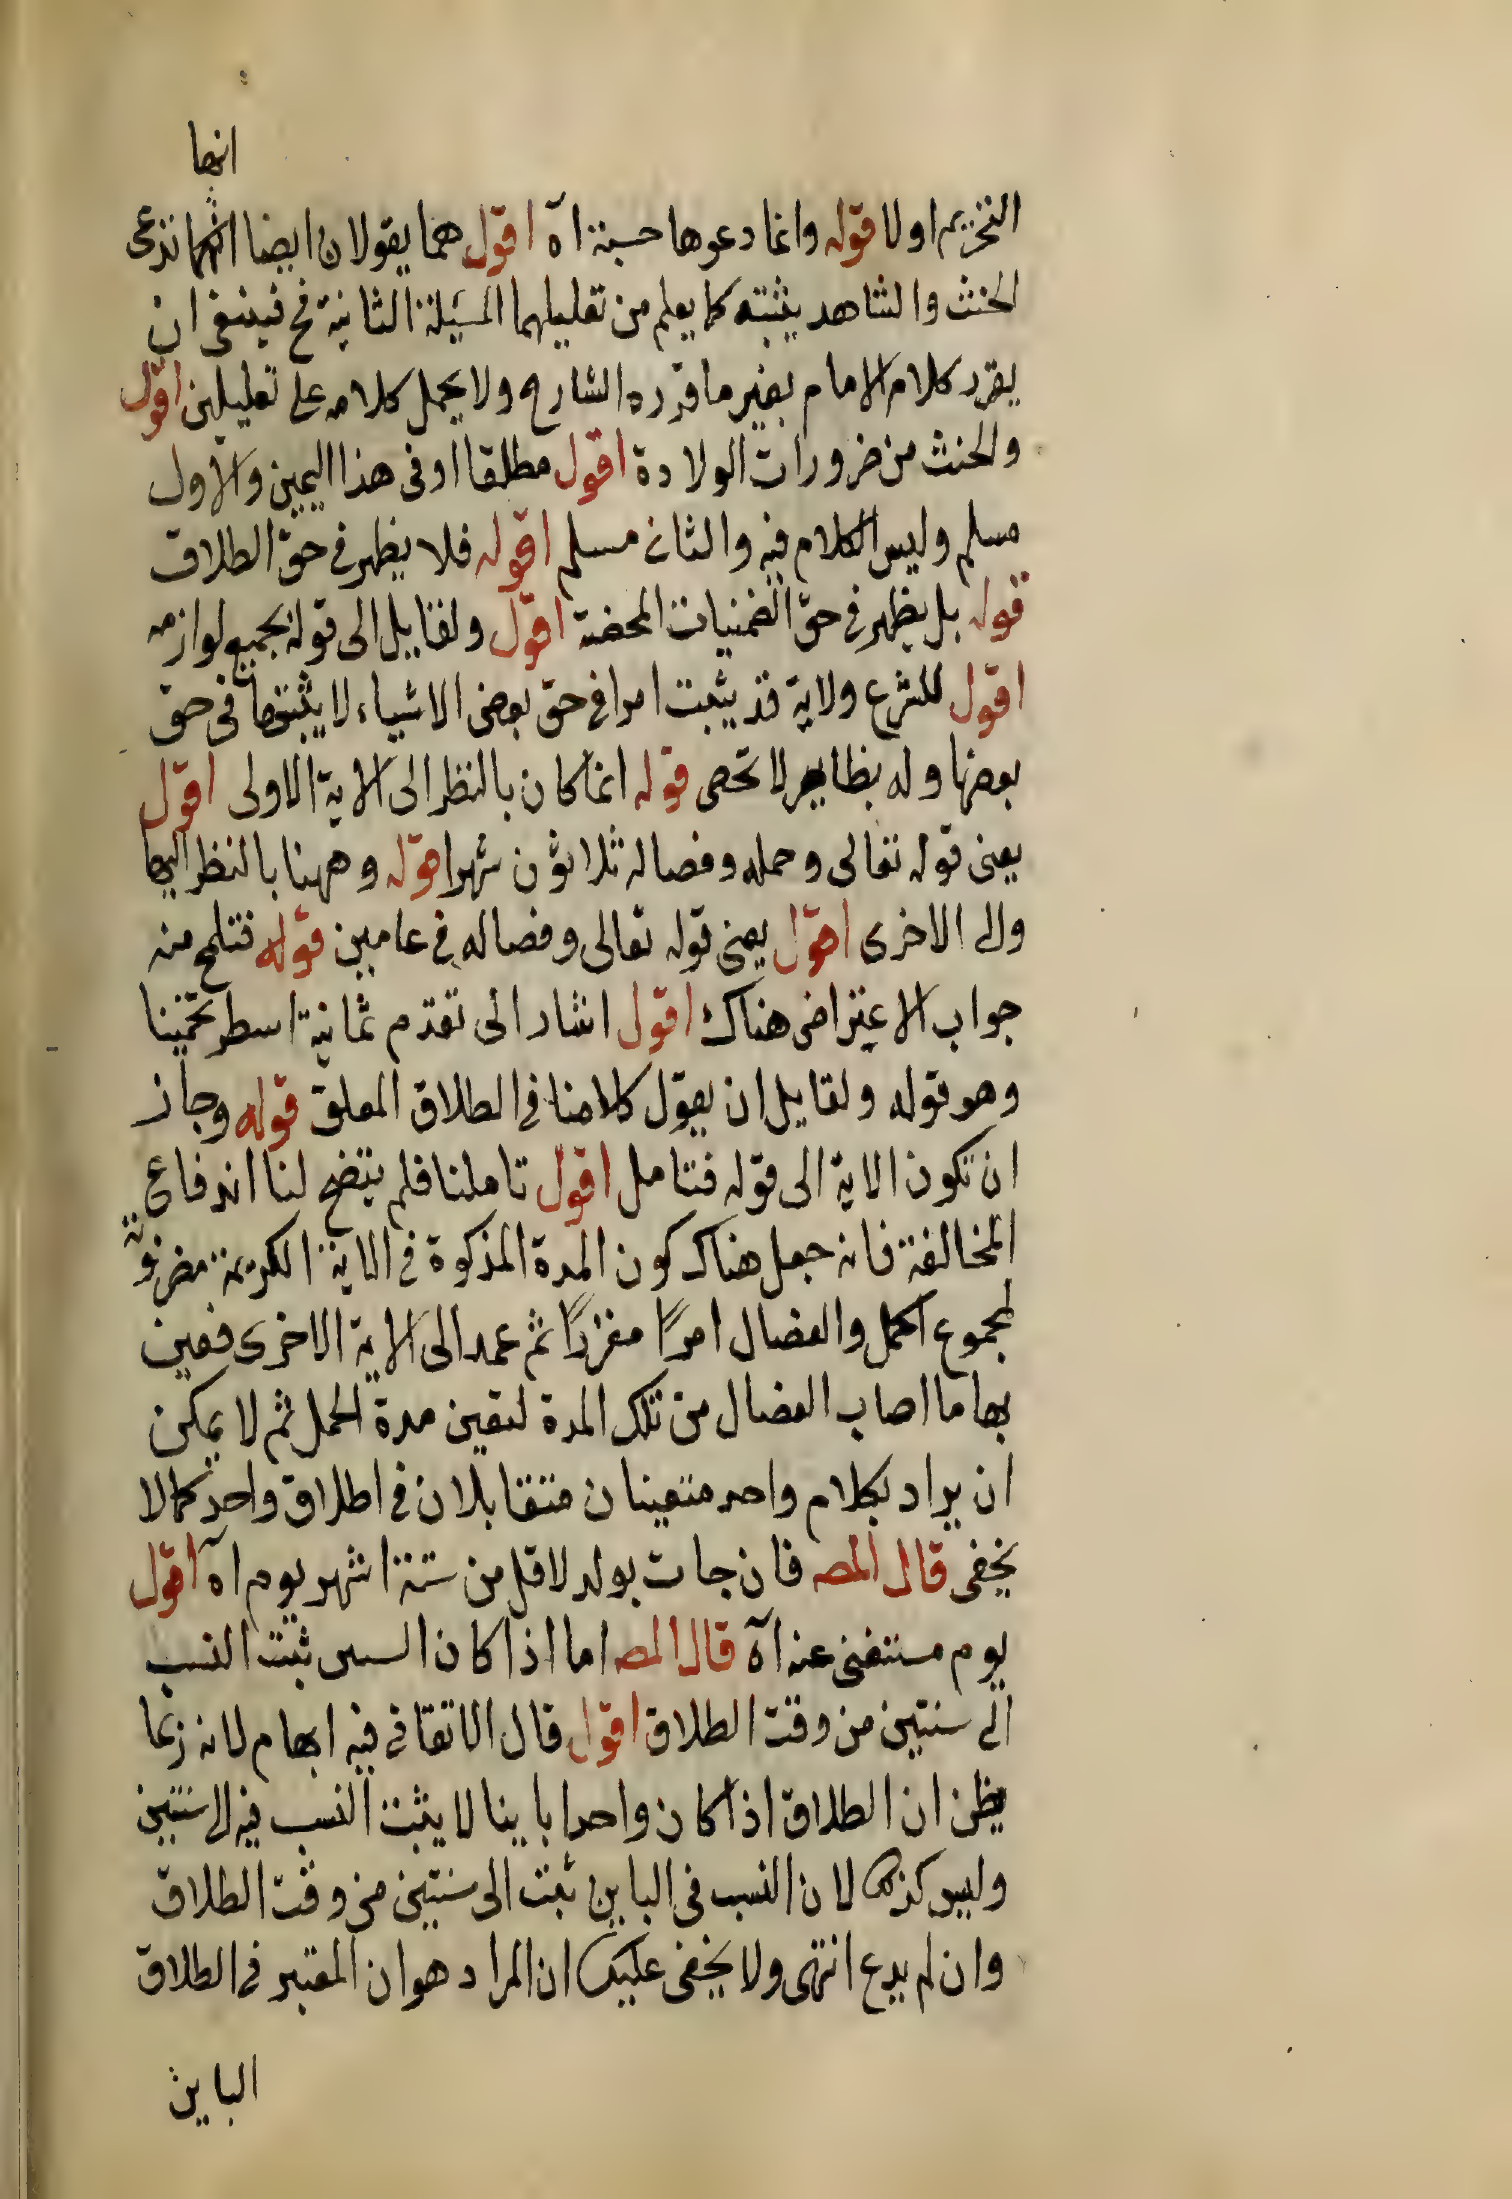 انها
التحريم اولا قوله وانما دعوها حسبة اه اقول هما يقولان ايضا انهما تدعى
الحنث والشاهد يثبته كما يعلم من تعليلهما المسئلة الثانية فح فينبغى ان
يقرر كلام الامام بغير ما قرره الشارح ولا يحمل كلامه على تعليلين اقول
والحنث من ضرورات الولادة اقول مطلقا او فى هذا اليمين والاول
مسلم وليس الكلام فيه والثانى مسلم اقوله فلا يظهر فى حق الطلاق
قوله بل يظهر فى حق الضمنيات المحضة اقول ولقايل الى قوله بجميع لوازمه
اقول للشرع ولاية قد يثبت امرا فى حق بعض الاشياء لا يثبتها فى حق
بعضها وله نظاير لا تحصى قوله انما كان بالنظر الى الاية الاولى اقول
يعنى قوله تعالى وحمله وفصاله ثلاثون شهرا قوله وههنا بالنظر اليها
والى الاخرى اقول يعنى قوله تعالى وفصاله فى عامين قوله فتلمح منه
جواب الاعتراض هناك اقول اشار الى تقدم ثمانية اسطر تخمينا
وهو قوله ولقايل ان يقول كلامنا فى الطلاق المعلق قوله وجاز
ان تكون الاية الى قوله فتامل اقول تاملنا فلم يتضح لنا اندفاع
المخالفة فانه جعل هناك كون المدة المذكوة فى الاية الكريمة مضروبة
لمجموع الحمل والفصال امرا مقررا ثم عمد الى الاية الاخرى فعين
بها ما اصاب الفصال من تلك المدة لتعين مدة الحمل ثم لا يمكن
ان يراد بكلام واحد متعينان متقابلان فى اطلاق واحد كما لا
يخفى قال المصه فان جات بولد لاقل من ستة اشهر يوم اه اقول
يوم مستغنى عنه اه قال المصه اما اذا كان السى ثبت النسب
الى سنتين من وقت الطلاق اقول قال الاتقانى فيه ابهام لانه زعما
يظن ان الطلاق اذا كان واحدا باينا لا يثبت النسب فيه الى سنتين
وليس كذلك لان النسب فى الباين ثبت الى سنتين من وقت الطلاق
وان لم يدع انتهى ولا يخفى عليك ان المراد هو ان المعتبر فى الطلاق
الباين